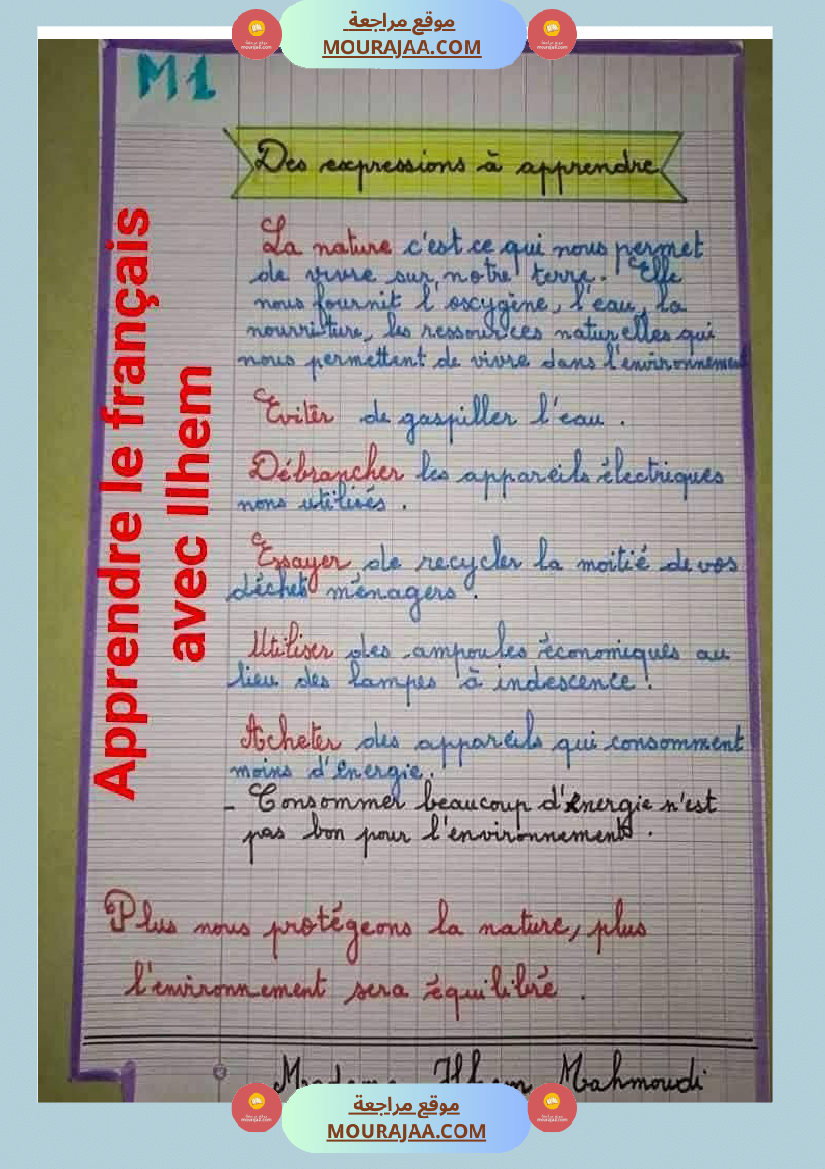 موقع مراجعة
MOURAJAA.COM
M1
Des expressions à apprendre
Apprendre le français
avec Ilhem
La nature c'est ce qui nous permet
de vivre sur notre terre. Elle
nous fournit l'oxygène, l'eau, la
nourriture, les ressources naturelles qui
nous permettent de vivre dans l'environnement
Eviter de gaspiller l'eau .
Débrancher les appareils électriques
nons utilisés .
Essayer de recycler la moitié de vos
déchets ménagers .
Utiliser des ampoules économiques au
lieu des lampes à indescence .
Acheter des appareils qui consomment
moins d'énergie.
- Consommer beaucoup d'énergie n'est
pas bon pour l'environnement .
Plus nous protégeons la nature, plus
l'environnement sera équilibré .
Madame Ilhem Mahmoudi
موقع مراجعة
MOURAJAA.COM